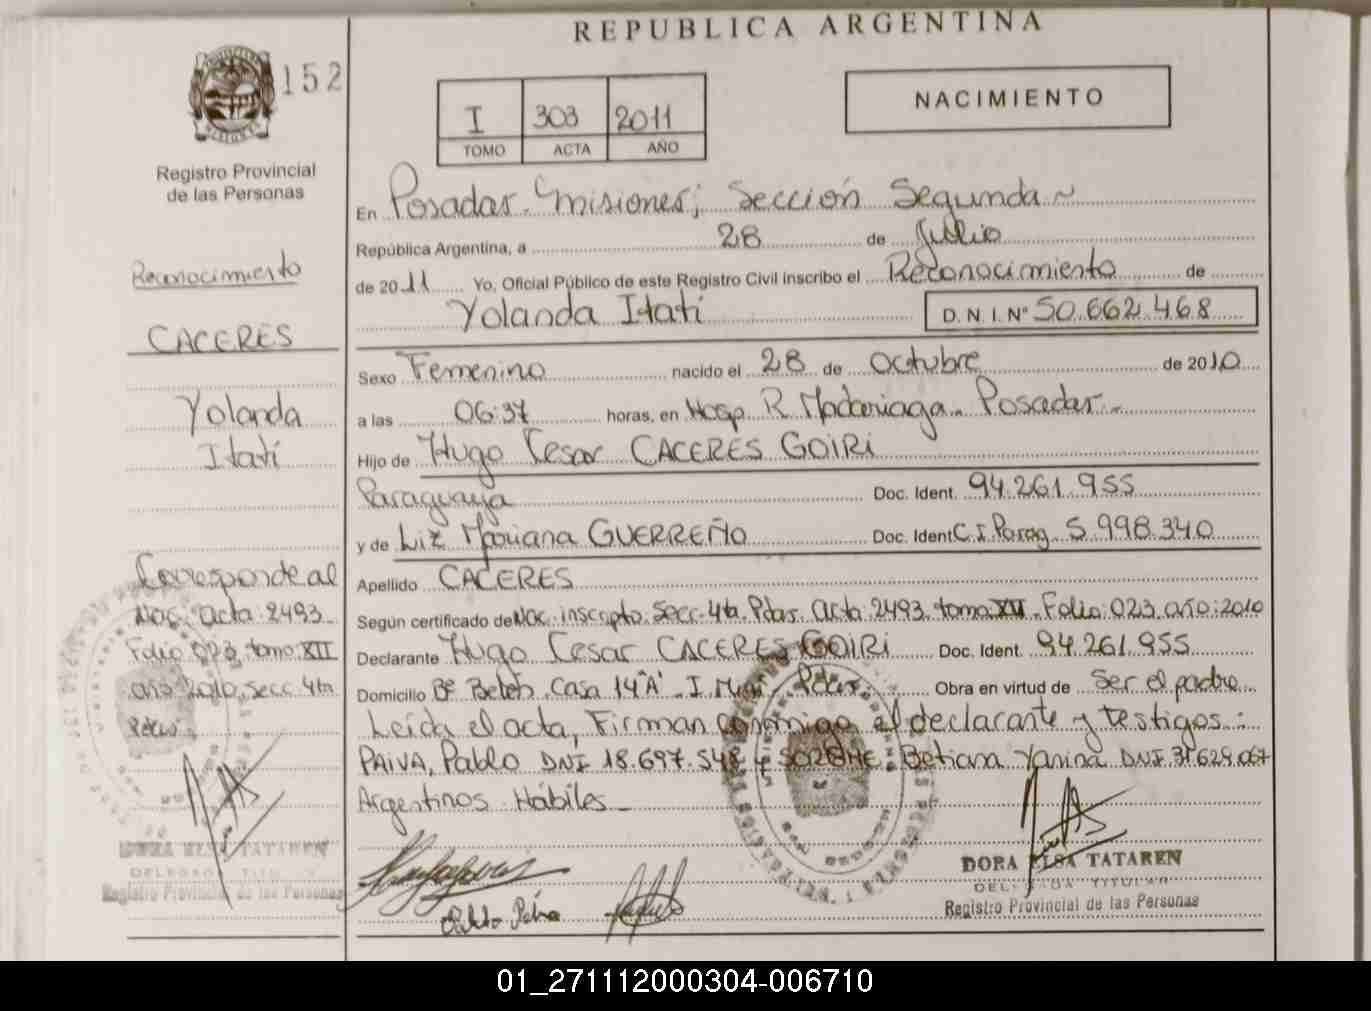 REPUBLICA ARGENTINA
152
I 303 2011
TOMO ACTA AÑO
NACIMIENTO
Registro Provincial
de las Personas
En Posadas. Misiones; Sección Segunda~
República Argentina, a 28 de Julio
de 2011 Yo, Oficial Público de este Registro Civil inscribo el Reconocimiento de
Yolanda Itatí D.N.I. Nº 50.662.468
Sexo Femenino nacido el 28 de Octubre de 2010
a las 06:37 horas, en Hosp R. Madariaga. Posadas
Hijo de Hugo Cesar CACERES GOIRI
Paraguaya Doc. Ident. 94.261.955
y de Liz Mariana GUERREÑO Doc. Ident C.I. Parag 5.998.340
Apellido CACERES
Según certificado de Nac. inscripto. Secc. 4ta. Pdas. Acta: 2493. tomo XII. Folio: 023. año: 2010
Declarante Hugo Cesar CACERES GOIRI Doc. Ident. 94.261.955
Domicilio Bº Belén. Casa 14 "A" Pdas. Obra en virtud de Ser el padre
Leída el acta, Firman conmigo el declarante y testigos:
PAIVA, Pablo DNI 18.697.548 y Betiana Yanina DNI. 31.629.067
Argentinos. Hábiles
Reconocimiento
CACERES
Yolanda
Itatí
Corresponde al
Nac. acta: 2493
Folio 023, tomo XII
año 2010. secc 4ta
Pdas.
DORA ELSA TATAREN
DELEGADA TITULAR
Registro Provincial de las Personas
DORA ELSA TATAREN
DELEGADA TITULAR
Registro Provincial de las Personas
01_271112000304-006710